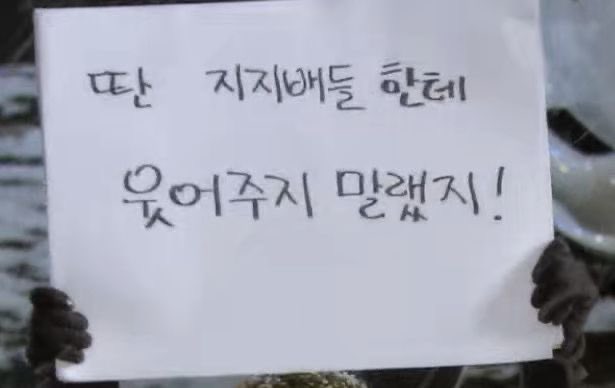 딴 지지배들 한테
웃어주지 말랬지!